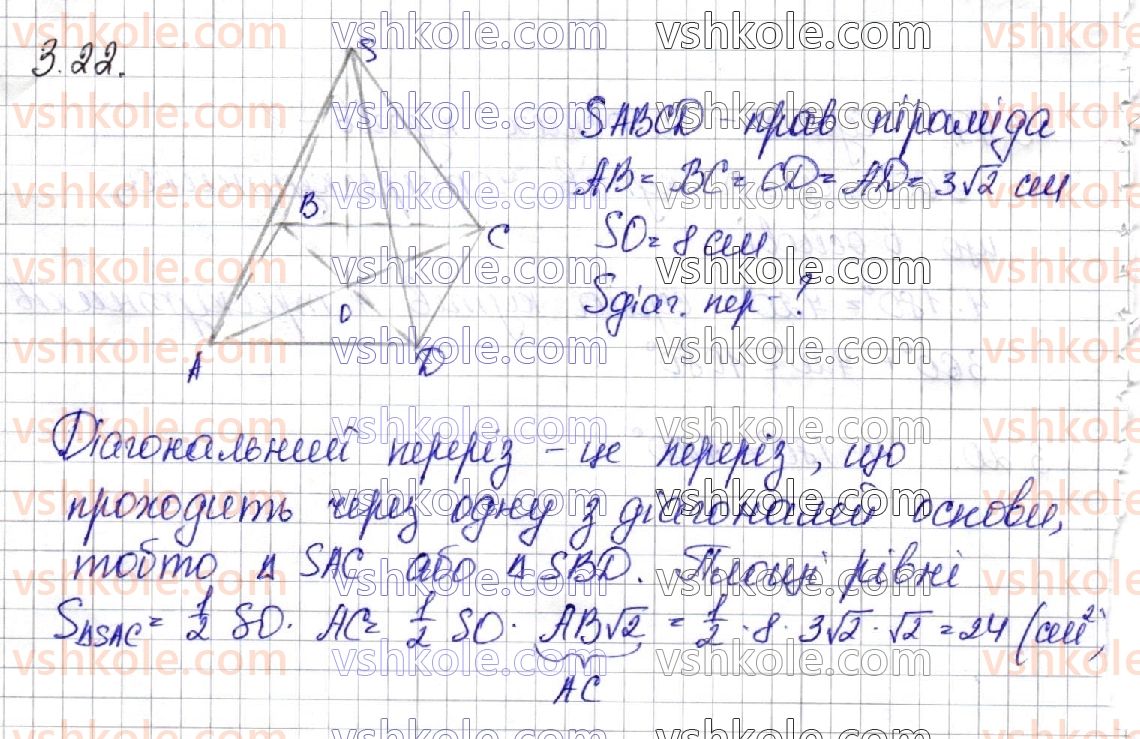 3.22.
S
B
C
O
A
D
SABCD - прав піраміда
AB = BC = CD = AD = 3√2 см
SO = 8 см
Sдіаг. пер - ?
Діагональний переріз - це переріз, що
проходить через одну з діагоналей основи,
тобто △ SAC або △ SBD. Площі рівні
S△SAC = 1/2 SO · AC = 1/2 SO · AB√2 = 1/2 · 8 · 3√2 · √2 = 24 (см²)
AC
vshkole.com